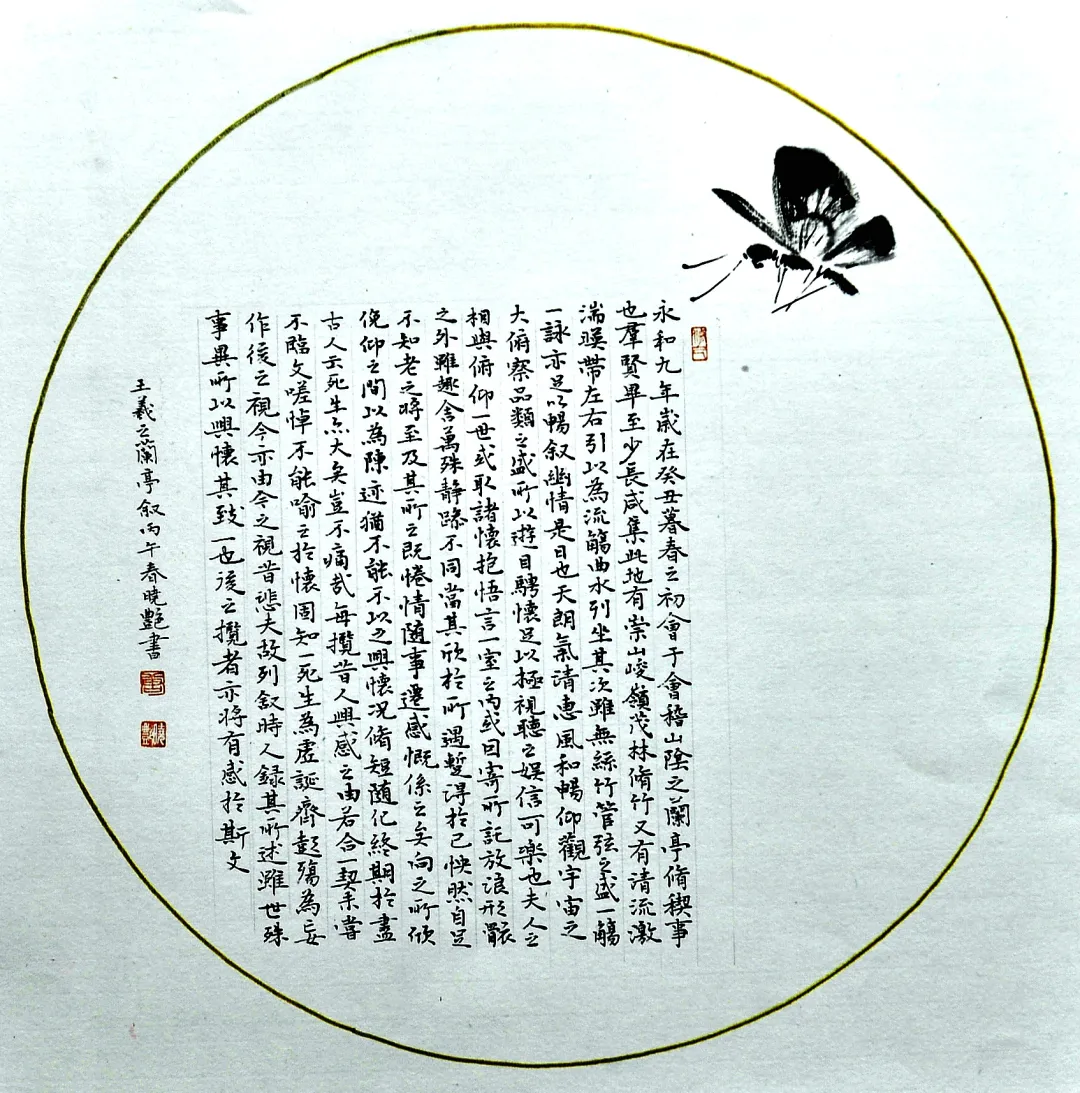 永和九年歲在癸丑暮春之初會于會稽山陰之蘭亭脩稧事
也羣賢畢至少長咸集此地有崇山峻嶺茂林脩竹又有清流激
湍暎帶左右引以為流觴曲水列坐其次雖無絲竹管弦之盛一觴
一詠亦足以暢叙幽情是日也天朗氣清惠風和暢仰觀宇宙之
大俯察品類之盛所以遊目騁懷足以極視聽之娛信可樂也夫人之
相與俯仰一世或取諸懷抱悟言一室之內或因寄所託放浪形骸
之外雖趣舍萬殊静躁不同當其欣於所遇蹔得於己怏然自足
不知老之將至及其所之既惓情隨事遷感慨係之矣向之所欣
俛仰之間以為陳迹猶不能不以之興懷况脩短隨化終期於盡
古人云死生亦大矣豈不痛哉每攬昔人興感之由若合一契未嘗
不臨文嗟悼不能喻之於懷固知一死生為虛誕齊彭殤為妄
作後之視今亦由今之視昔悲夫故列叙時人録其所述雖世殊
事異所以興懷其致一也後之攬者亦將有感於斯文
王羲之蘭亭叙丙午春曉艷書